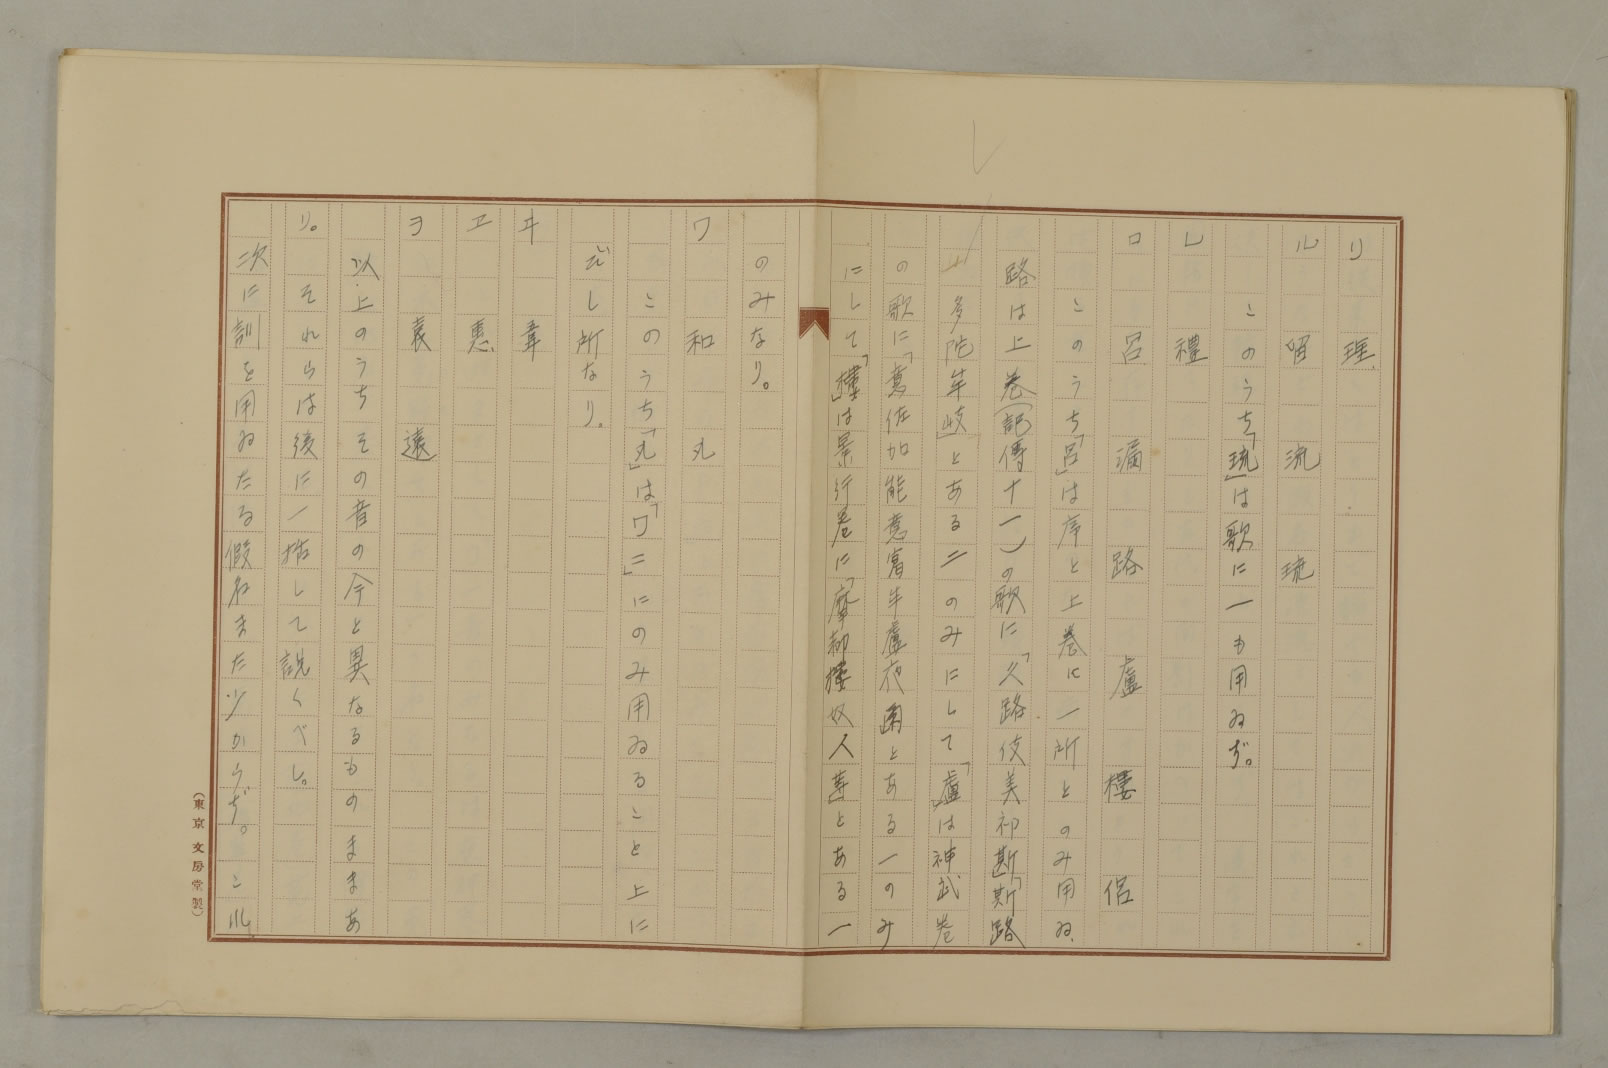 リ　理
ル　留　流　琉
このうち「琉」は歌に一も用ゐず。
レ　禮
ロ　呂　漏　路　盧　樓　侶
このうち「呂」は序と上巻に一所とのみ用ゐ、
路は上巻(記傳十一)の歌に「久路伎美祁斯」「斯路
多陀牟岐」とある二のみにして「盧」は神武巻
の歌に「意佐加能意富牟盧夜爾とある一のみ
にして「樓」は景行巻に「摩都樓奴人等」とある一
のみなり。
ワ　和　丸
このうち「丸」は「ワニ」にのみ用ゐること上に
いし所なり。
ヰ　韋
ヱ　惠
ヲ　袁　遠
以上のうちその音の今と異なるものままあ
り。それらは後に一括して説くべし。
次に訓を用ゐたる假名また少からず。これ
(東京 文房堂製)